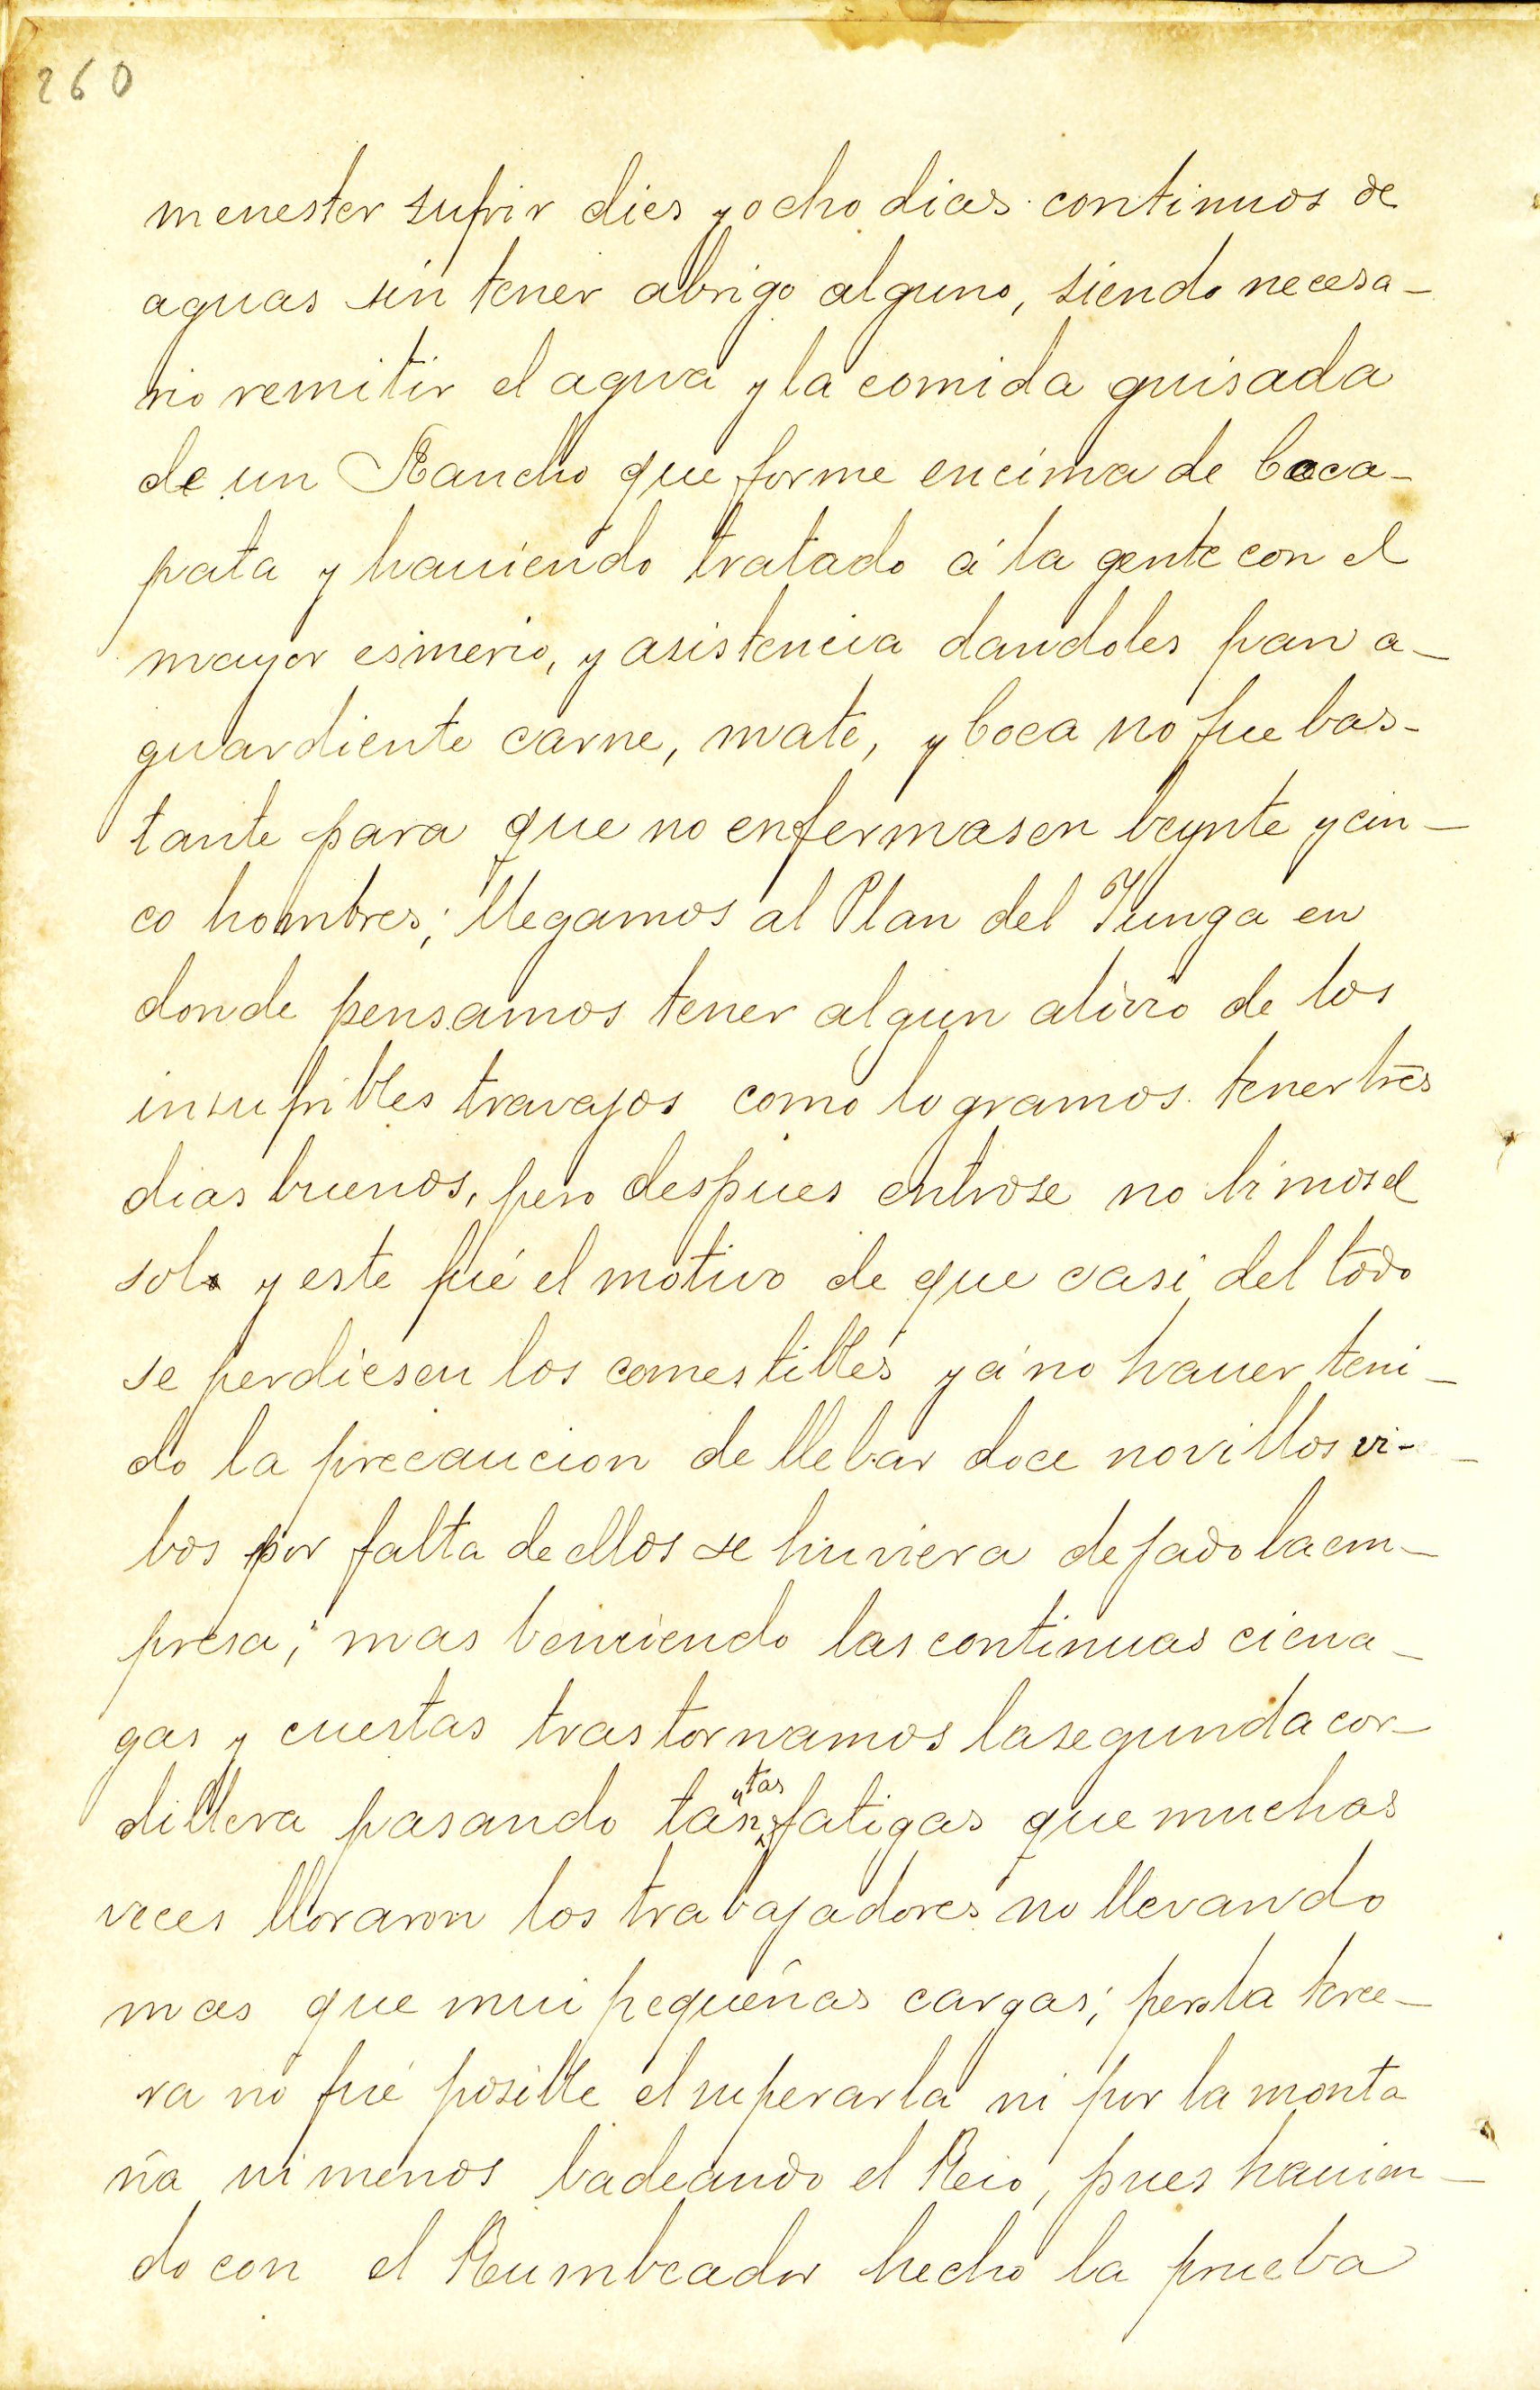 260
menester sufrir dies y ocho dias continuos de
aguas sin tener abrigo alguno, siendo necesa-
rio remitir el agua y la comida guisada
de un Rancho que forme encima de Coca-
pata y haviendo tratado á la gente con el
mayor esmerio, y asistencia dandoles pan a-
guardiente carne, mate, y Coca no fue bas-
tante para que no enfermasen beynte y cin-
co hombres; llegamos al Plan del Yunga en
donde pensamos tener algun alivio de los
insufribles travajos como logramos tener tres
dias buenos, pero despues entrose no bimos el
sol y este fué el motivo de que casi del todo
se perdiesen los comestibles y á no haver teni-
do la precaucion de llebar doce novillos vi-
bos por falta de ellos se huviera dejado la em-
presa; mas benciendo las continuas ciena-
gas y cuestas trastornamos la segunda cor-
dillera pasando tantas fatigas que muchas
veces lloraron los trabajadores no llevando
mas que mui pequeñas cargas; pero la terce-
ra no fué posible el superarla ni por la monta
ña ni menos badeando el Reio, pues havien-
do con el Rumbeador hecho la prueba